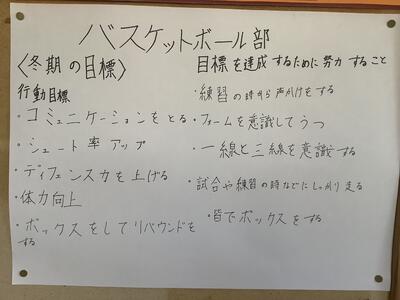 バスケットボール部
〈冬期の目標〉
行動目標
・コミュニケーションをとる
・シュート率アップ
・ディフェンス力を上げる
・体力向上
・ボックスをしてリバウンドを
する
目標を達成するために努力すること
・練習の時から声かけをする
・フォームを意識してうつ
・一線と三線を意識する
・試合や練習の時などにしっかり走る
・皆でボックスをする